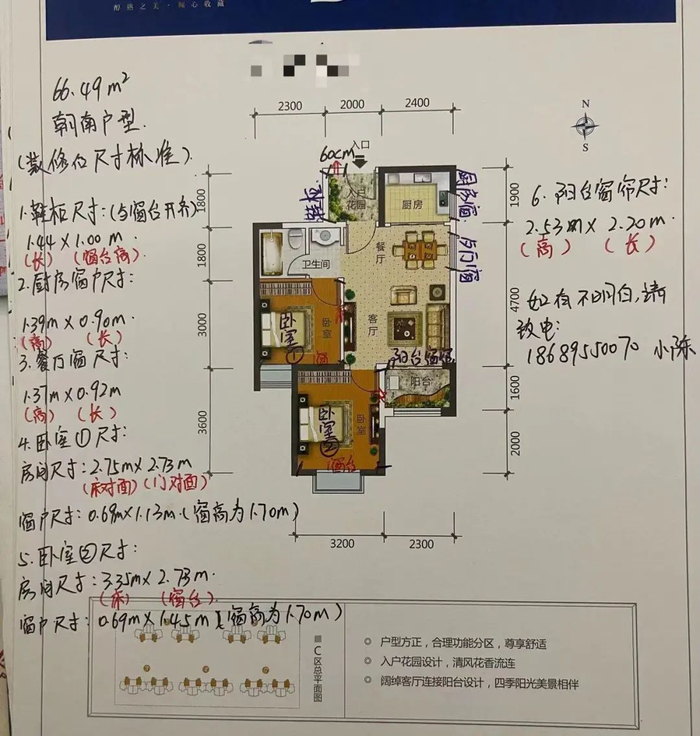 醇熟之美·倾心收藏
66.49m²
朝南户型.
(装修位尺寸标准).
1.鞋柜尺寸:(与窗台齐)
1.44×1.00m.
(长) (窗台高).
2.厨房窗户尺寸:
1.39m×0.90m.
(高) (长)
3.餐厅窗尺寸:
1.37m×0.92m
(高) (长)
4.卧室①尺寸:
房间尺寸:2.75m×2.73m
(床对面)(门对面)
窗户尺寸:0.69m×1.13m.(窗高为1.70m)
5.卧室②尺寸:
房间尺寸:3.35m×2.73m.
(床) (窗台).
窗户尺寸:0.69m×1.45m(窗高为1.70m)
6.阳台窗帘尺寸:
2.53m×2.20m.
(高) (长)
如有不明白,请
致电:
18689550070 小陈
2300 2000 2400
入口
60cm
入户
花园
厨房
鞋柜
厨房窗
餐厅窗
卫生间
餐厅
客厅
卧室①
卧室
阳台窗帘
阳台
卧室②
卧室
窗台
1800
1800
3000
3600
1900
4700
1600
2000
3200 2300
N
S
C区总平面图
户型方正,合理功能分区,尊享舒适
入户花园设计,清风花香流连
阔绰客厅连接阳台设计,四季阳光美景相伴